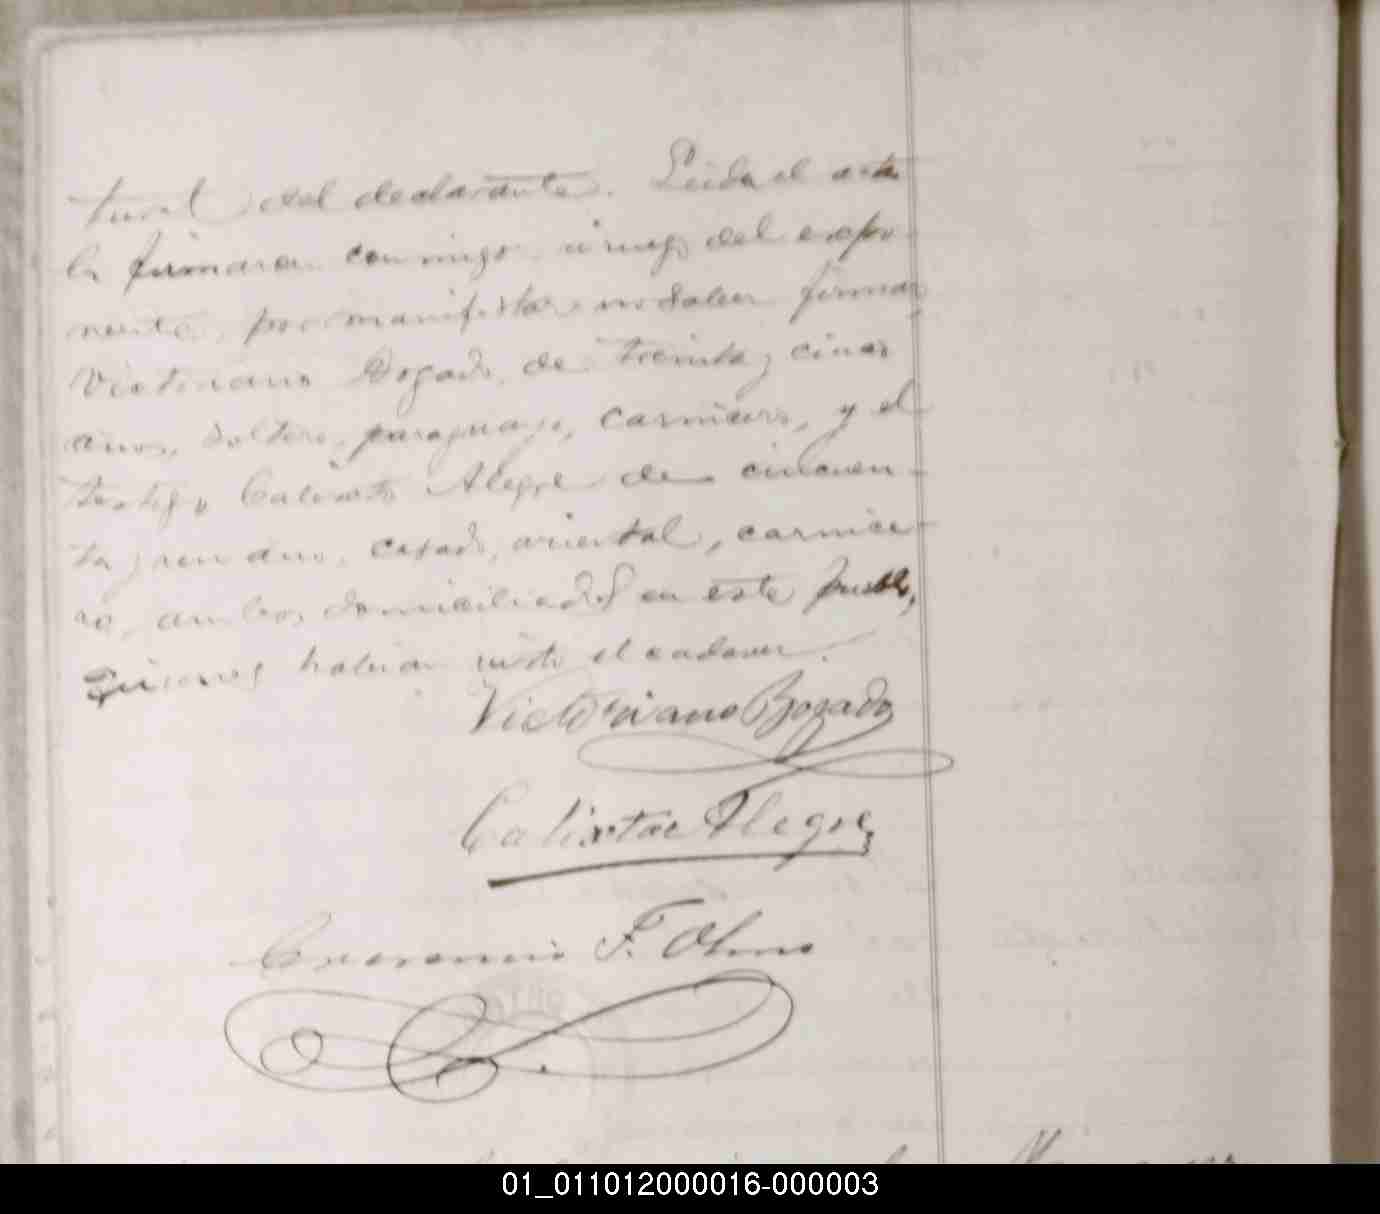 tural del declarante. Leida el acta
la firmaron conmigo, á ruego del expo-
nente, por manifestar no saber firmar
Victoriano Bogado, de treinta y cinco
años, soltero, paraguayo, carnicero, y el
testigo Calixto Alegre de cincuen-
ta y un años, casado, oriental, carnice-
ro, ambos domiciliados en este pueblo,
quienes habian visto el cadaver.
Victoriano Bogado
Calixtro Alegre
F. Olmo
01_011012000016-000003